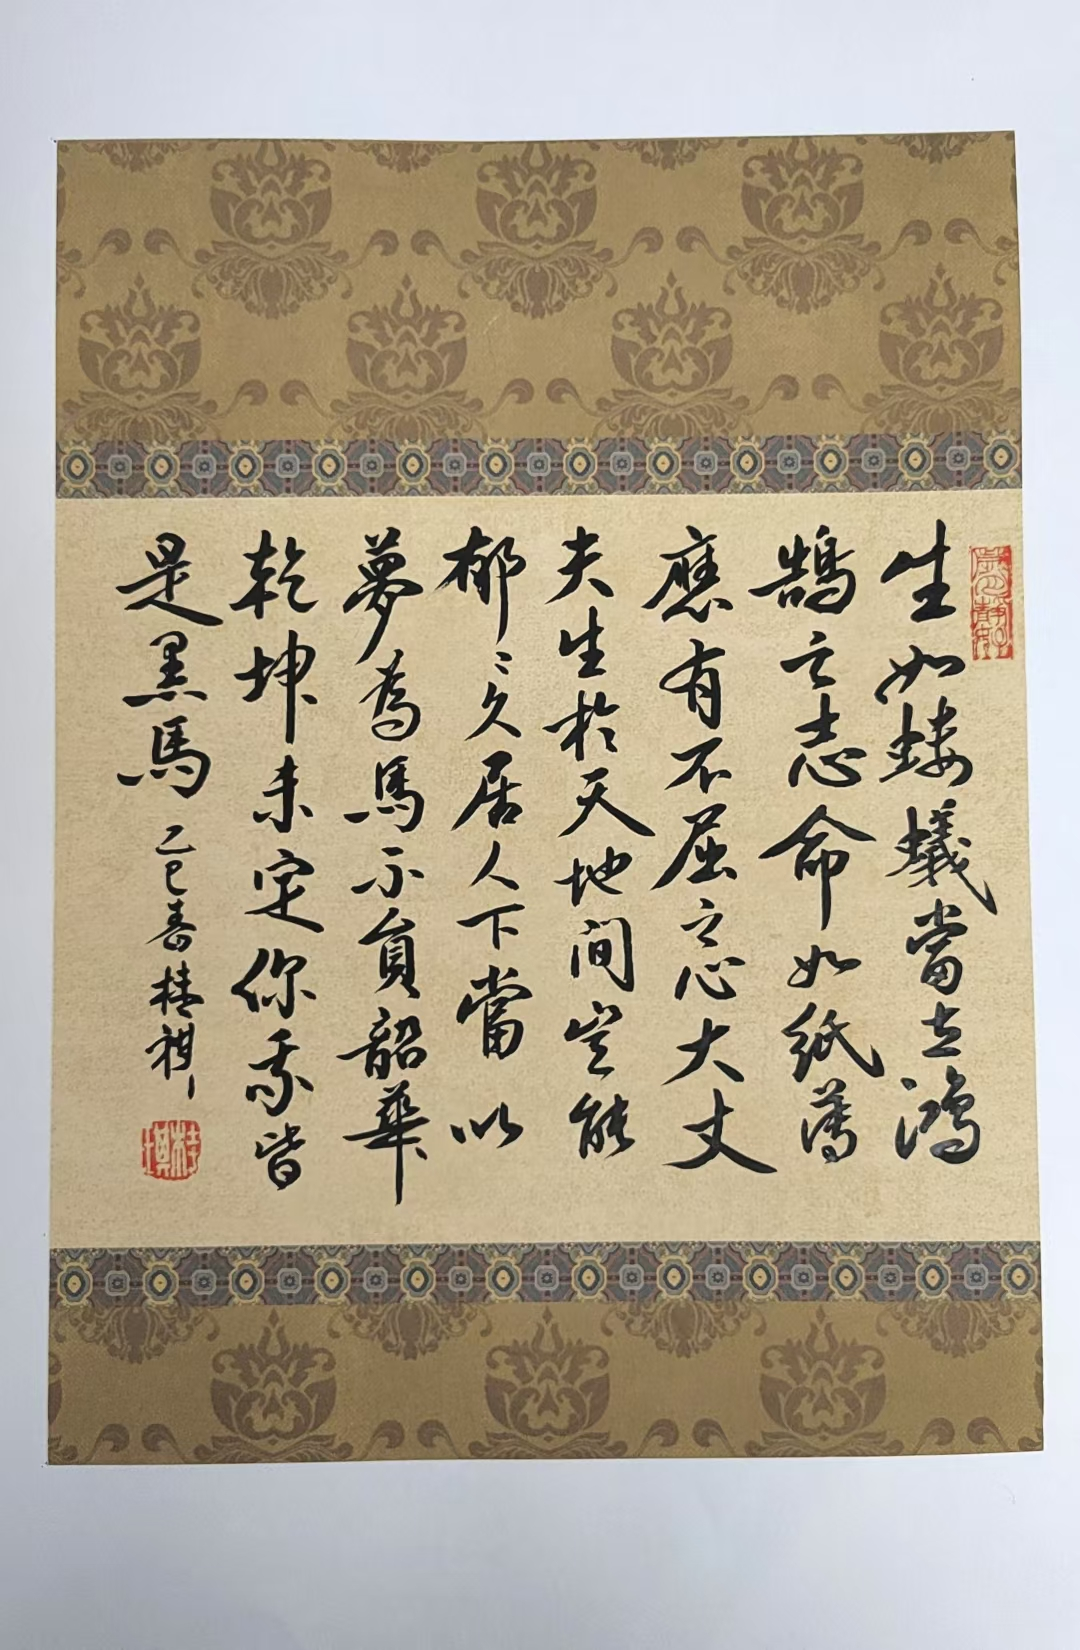 生如螻蟻當立鴻
鵠之志命如紙薄
應有不屈之心大丈
夫生於天地間豈能
郁〻久居人下當以
夢為馬不負韶華
乾坤未定你我皆
是黑馬
乙巳春桂祺